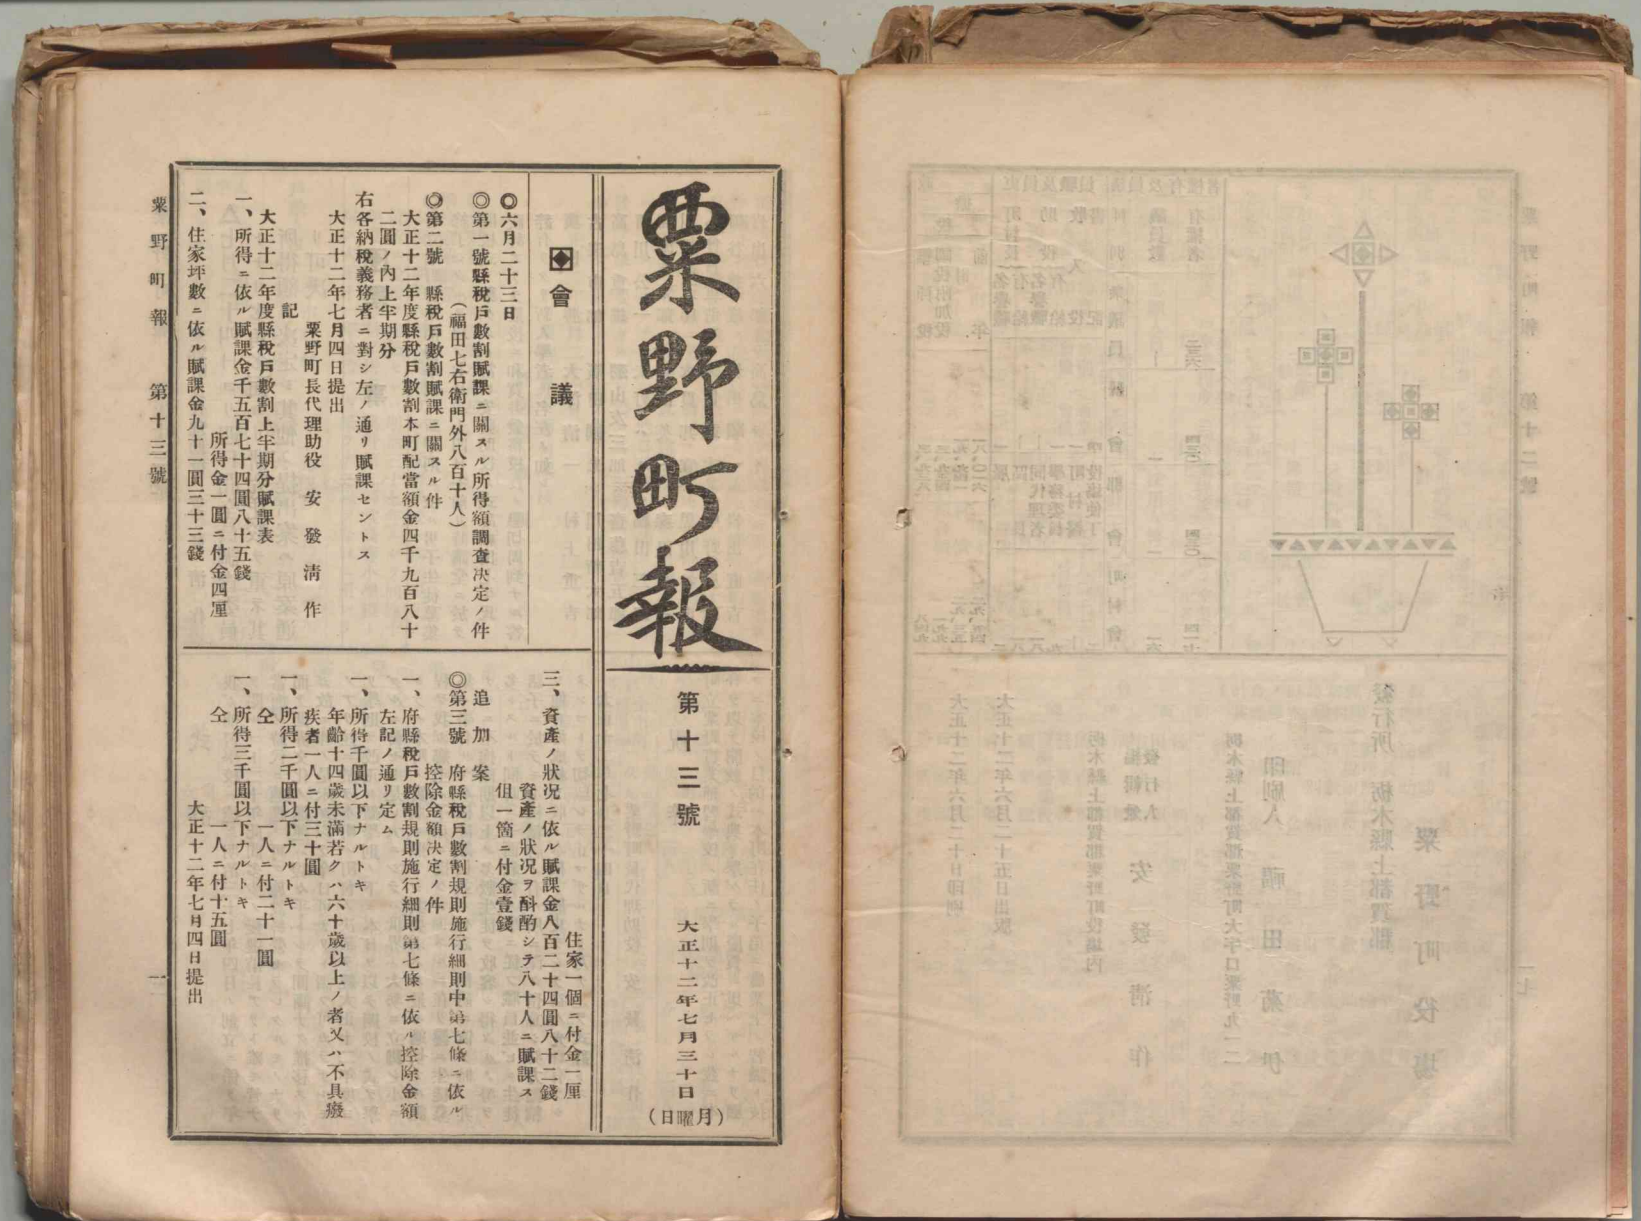 粟野町報
第十三號
大正十二年七月三十日
(月曜日)
會議
◎六月二十三日
◎第一號縣稅戶數割賦課ニ關スル所得額調査決定ノ件
(福田七右衛門外八百十人)
◎第二號 縣稅戶數割賦課ニ關スル件
大正十二年度縣稅戶數割本町配當額金四千九百八十
二圓ノ內上半期分
右各納稅義務者ニ對シ左ノ通リ賦課セントス
大正十二年七月四日提出
粟野町長代理助役 安發淸作
記
大正十二年度縣稅戶數割上半期分賦課表
一、所得ニ依ル賦課金千五百七十四圓八十五錢
所得金一圓ニ付金四厘
二、住家坪數ニ依ル賦課金九十一圓三十三錢
住家一個ニ付金一厘
三、資產ノ狀況ニ依ル賦課金八百二十四圓八十二錢
資產ノ狀況ヲ斟酌シテ八十人ニ賦課ス
但一箇ニ付金壹錢
追加案
◎第三號 府縣稅戶數割規則施行細則中第七條ニ依ル
控除金額決定ノ件
一、府縣稅戶數割規則施行細則第七條ニ依ル控除金額
左記ノ通リ定ム
一、所得千圓以下ナルトキ
年齡十四歲未滿若クハ六十歲以上ノ者又ハ不具癈
疾者一人ニ付三十圓
一、所得二千圓以下ナルトキ
仝 一人ニ付二十一圓
一、所得三千圓以下ナルトキ
仝 一人ニ付十五圓
大正十二年七月四日提出
粟野町報 第十三號 一